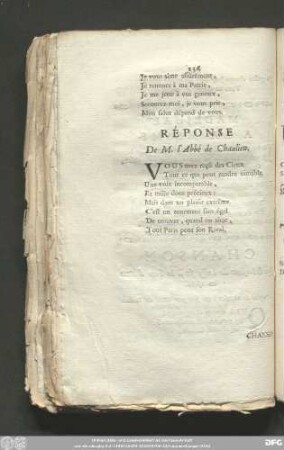 Je vous aime
Je renonce à ma Patrie,
Je me jette à vos genoux,
Secourez-moi, je vous prie,
Mon salut dépend de vous.
RÉPONSE
De M. l'Abbé de Chaulieu.
VOUS avez reçû des Cieux
Tout ce que peut rendre aimable
Une voix incomparable,
Et mille dons précieux:
Mais dans un plaisir extrême
C'est un tourment sans égal
De trouver, quand on aime,
Tout Paris pour son Rival.
CHANSO
DFG